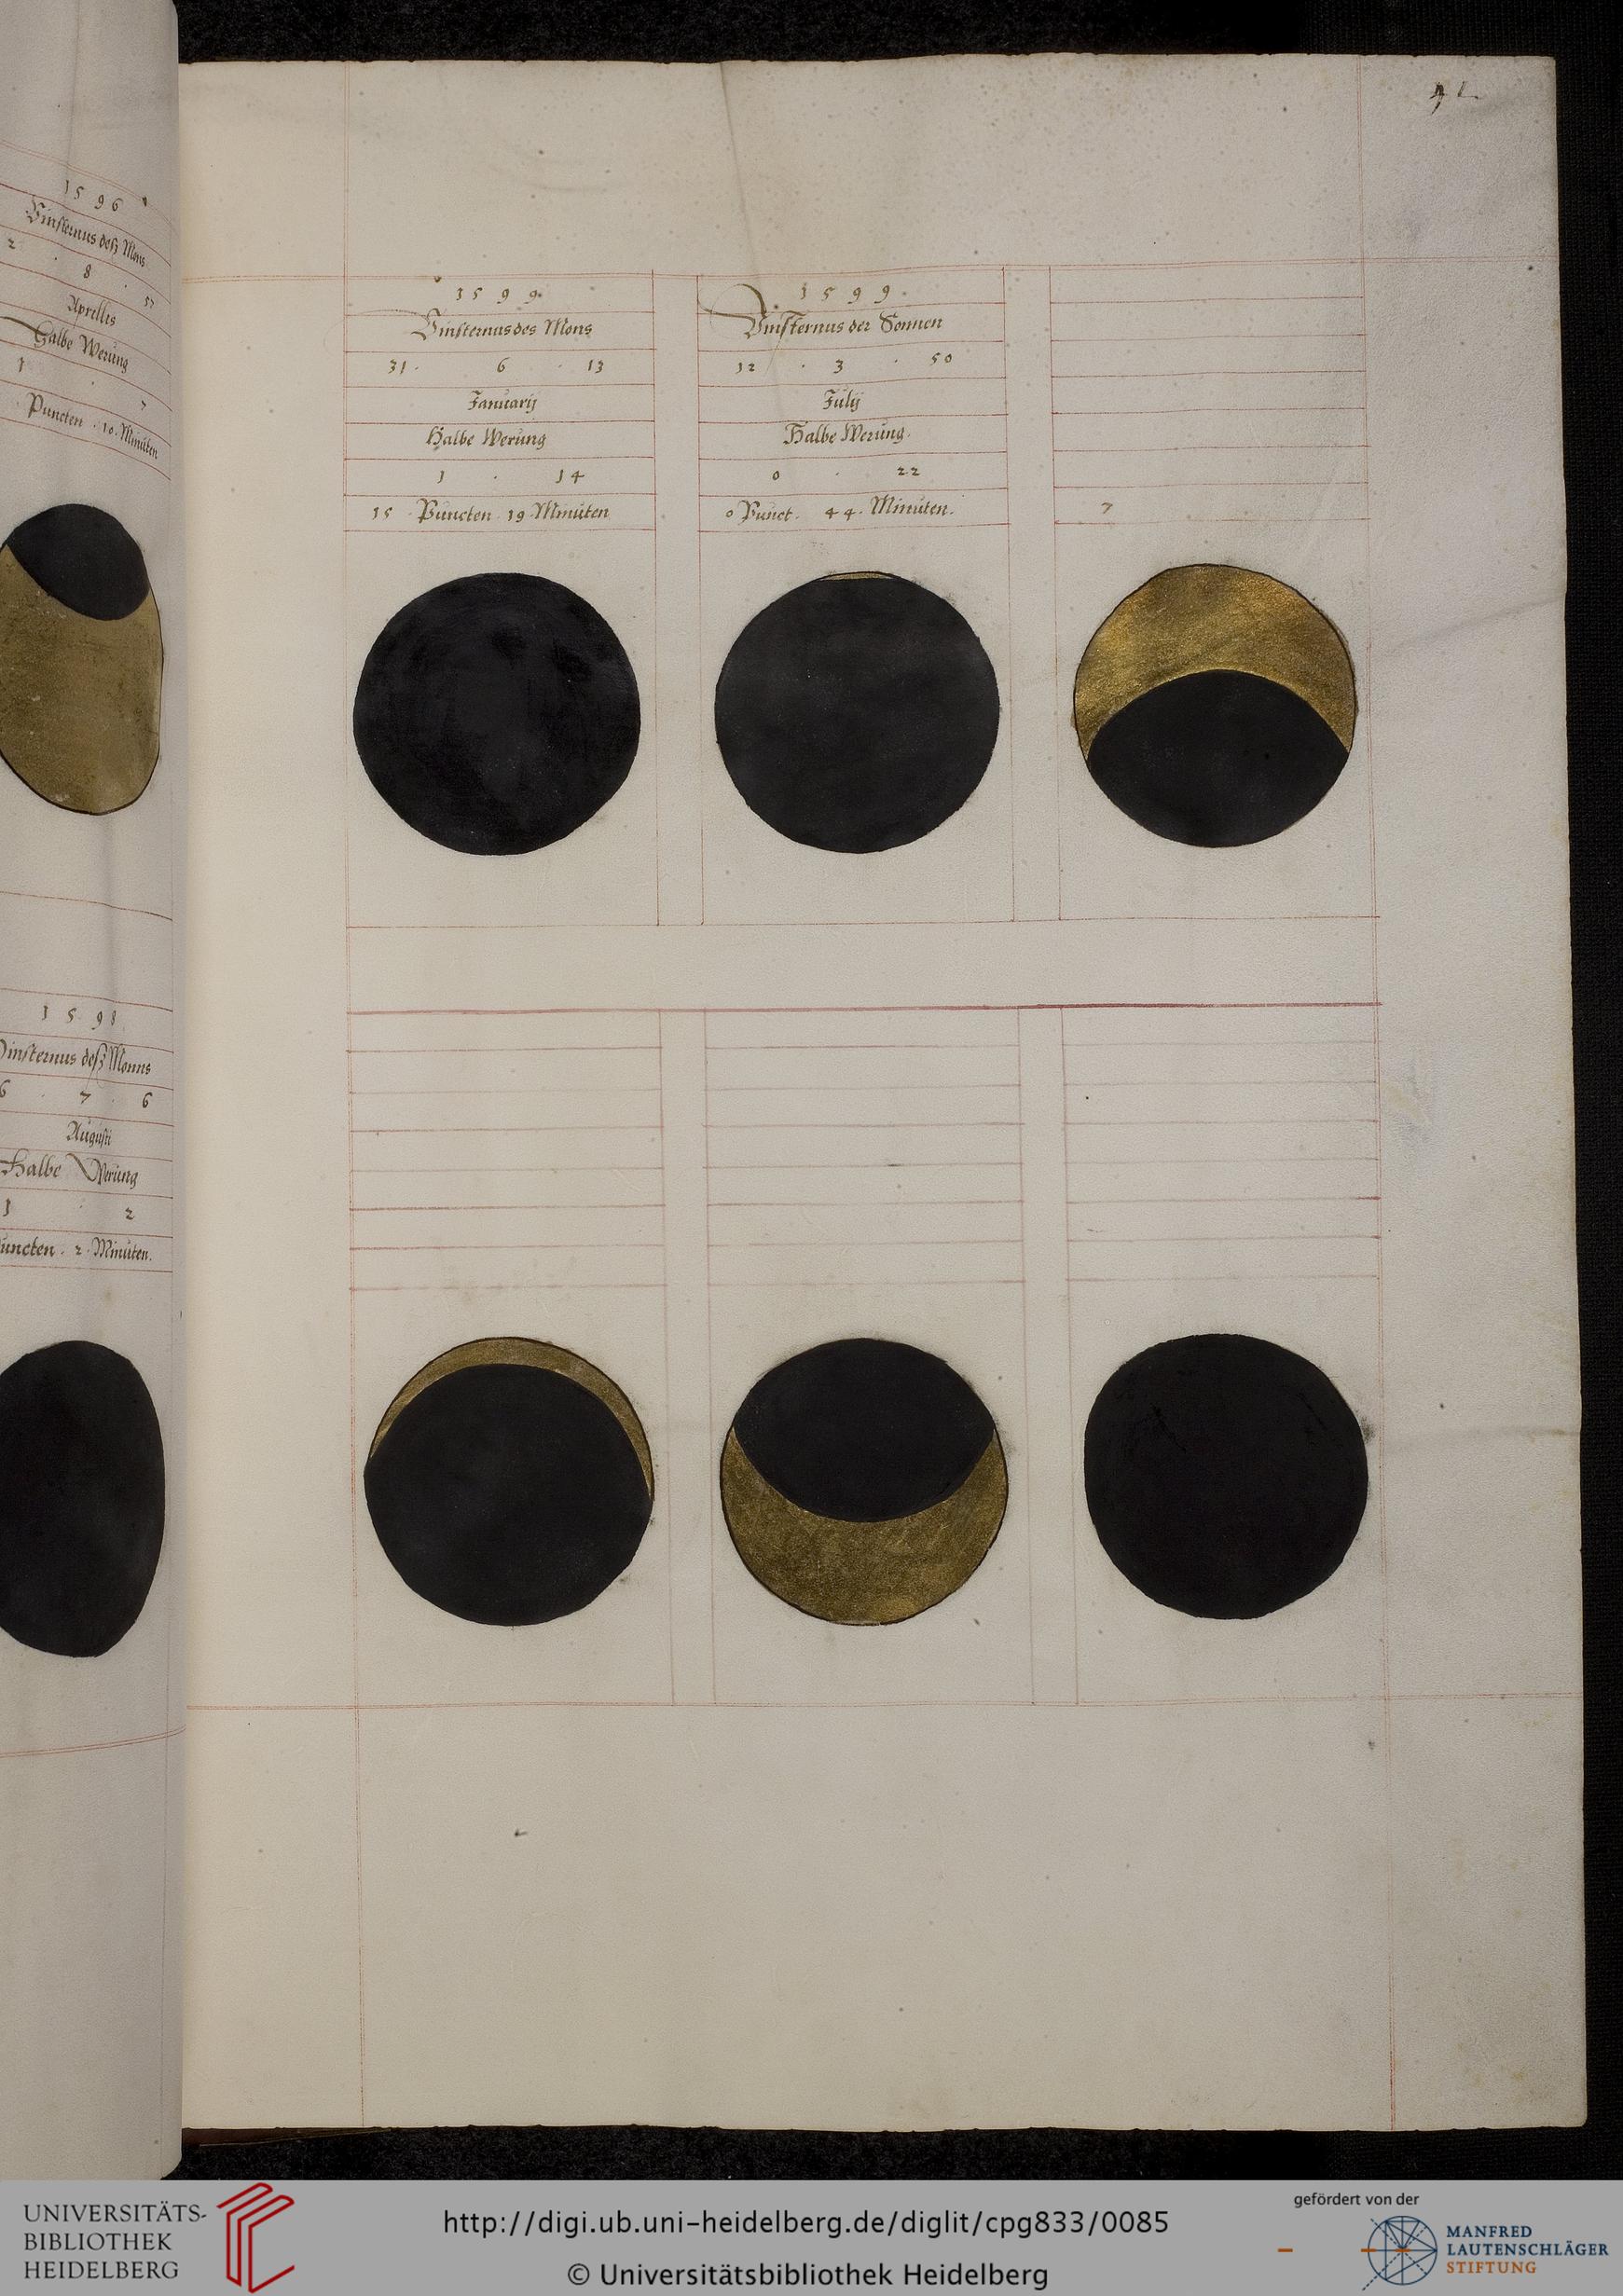 1596
Vinsternus deß Mons
2 . 8 . 57
Aprellis
Halbe Werung
1 . 7
Puncten . 10 . Minuten
1598
Vinsternus deß Monns
6 . 7 . 6
Augusti
Halbe Werung
1 2
Puncten . 2 . Minuten.
1599
Vinsternus des Mons
31 . 6 . 13
Januarij
Halbe Werung
1 . 14
15 . Puncten . 19 . Minuten
1599.
Vinsternus der Sonnen
12 . 3 . 50
Julij
Halbe Werung.
0 . 22
0 Punct. 44. Minuten.
7
UNIVERSITÄTS-
BIBLIOTHEK
HEIDELBERG
http://digi.ub.uni-heidelberg.de/diglit/cpg833/0085
© Universitätsbibliothek Heidelberg
gefördert von der
MANFRED
LAUTENSCHLÄGER
STIFTUNG